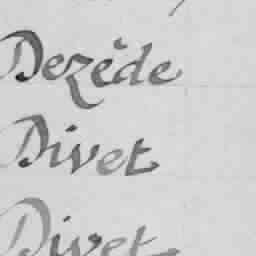 Dezède
Divet
Divet